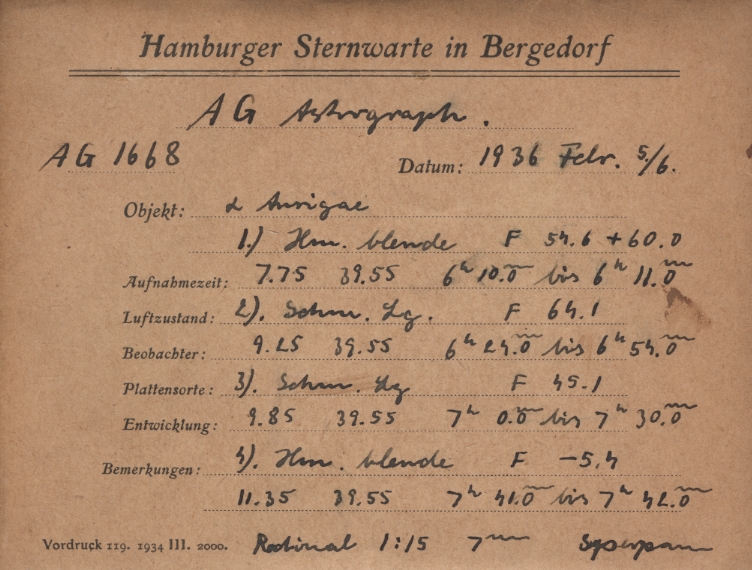 Hamburger Sternwarte in Bergedorf
AG Astrograph.
AG 1668 Datum: 1936 Febr. 5./6.
Objekt: α Aurigae
1.) Hm. blende F 54.6 + 60.0
Aufnahmezeit: 7.75 39.55 6ʰ 10.0ᵐ bis 6ʰ 11.0ᵐ
Luftzustand: 2). Schm. Lg. F 64.1
Beobachter: 9.25 39.55 6ʰ 24.0ᵐ bis 6ʰ 54.0ᵐ
Plattensorte: 3). Schm. Lg F 45.1
Entwicklung: 9.85 39.55 7ʰ 0.0ᵐ bis 7ʰ 30.0ᵐ
Bemerkungen: 4). Hm. blende F −5.4
11.35 39.55 7ʰ 41.0ᵐ bis 7ʰ 42.0ᵐ
Vordruck 119. 1934 III. 2000. Rodinal 1:15 7ᵐ Superpan